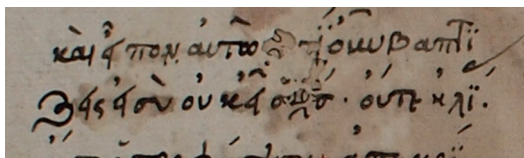 καὶ εἶπον αὐτῶ τί οὖν βαπτί
ζεις εἰ σὺ οὐκ εἶ ὁ · οὔτε ἠλί.